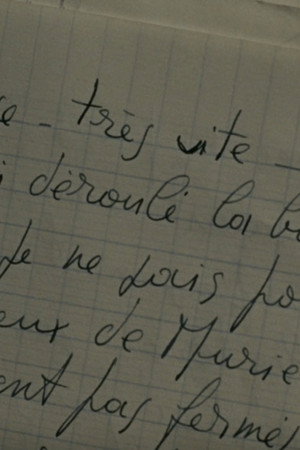 e - très vite -
i déroulé la b
Je ne sais po
eux de Murie
ent pas fermé